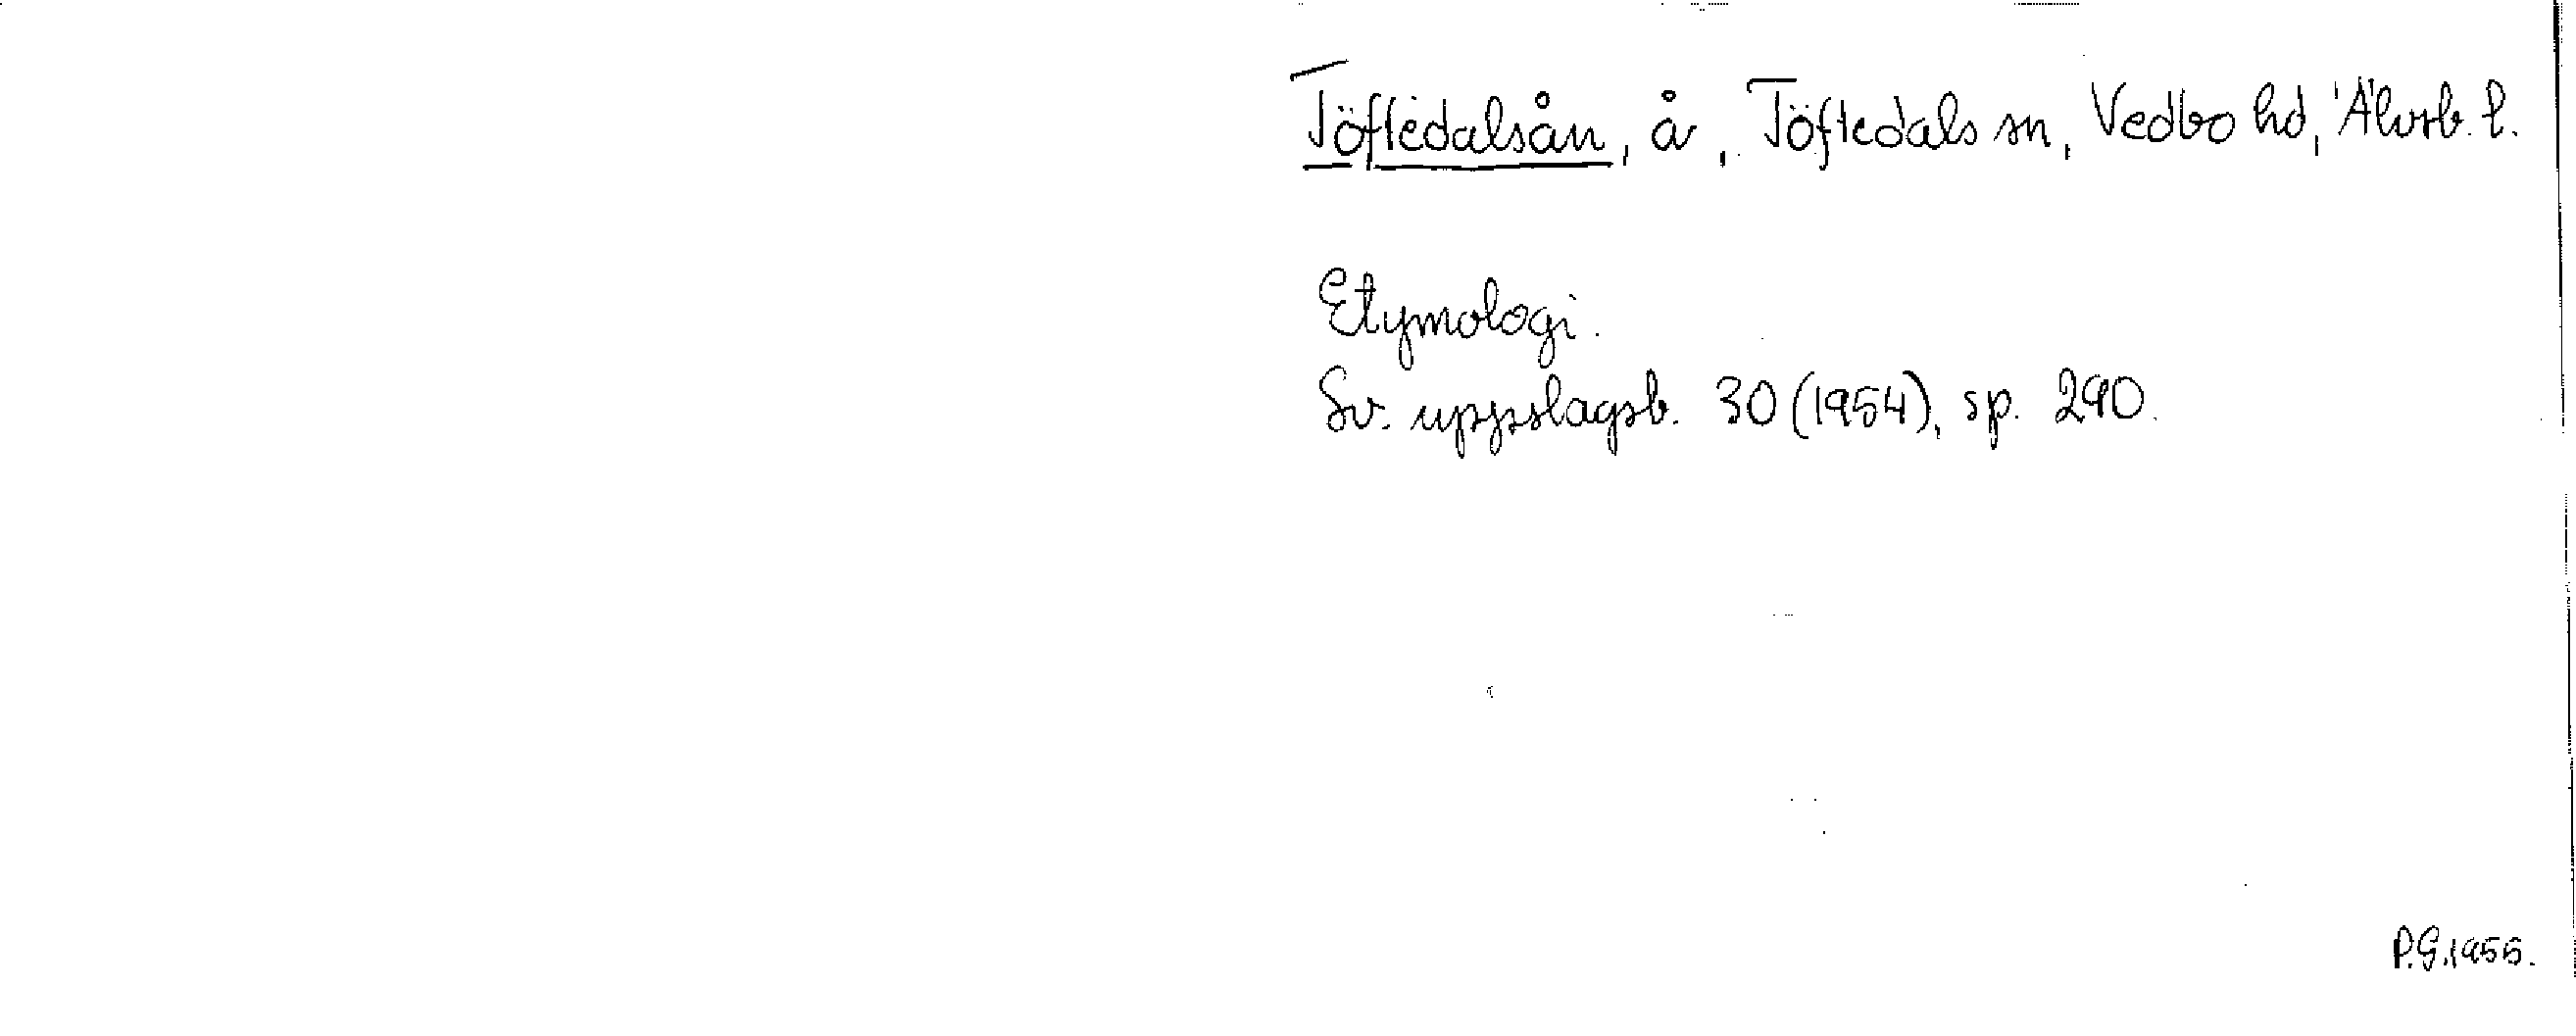 Töftedalsån, å, Töftedals sn, Vedbo hd, Älvsb. l.
Etymologi.
Sv. uppslagsb. 30 (1954), sp. 290.
P.G. 1955.